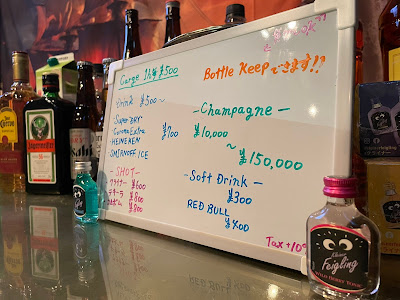 Carge 1h ¥500
Drink ¥500~
SuperDRY
CoronaExtra
HEINEKEN
SMIRNOFF ICE
¥700
-SHOT-
クライナー ¥600
テキーラ ¥800
¥800
Bottle Keepできます!!
-Champagne-
¥10,000
~
¥150,000
-Soft Drink-
¥300
RED BULL
¥400
Tax+10%
JÄGERMEISTER
Kleiner
Feigling